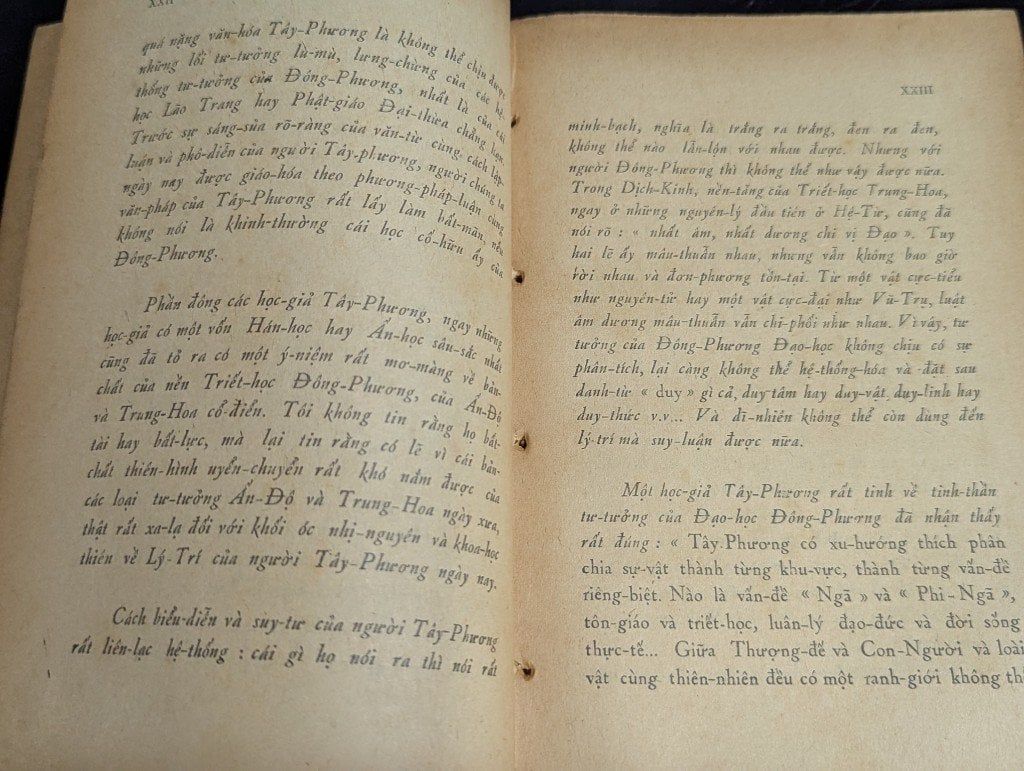 XXII
quá nặng văn-hóa Tây-Phương là không thể chịu được
những lối tư-tưởng lù-mù, lưng-chừng của các hệ-
thống tư-tưởng của Đông-Phương, nhất là của cái
học Lão Trang hay Phật-giáo Đại-thừa chẳng hạn.
Trước sự sáng-sủa rõ-ràng của văn-từ cùng cách lập-
luận và phô-diễn của người Tây-phương, người chúng ta
ngày nay được giáo-hóa theo phương-pháp-luận cùng
văn-pháp của Tây-Phương rất lấy làm bất-mãn, nếu
không nói là khinh-thường cái học cố-hữu ấy của
Đông-Phương.
Phần đông các học-giả Tây-Phương, ngay những
học-giả có một vốn Hán-học hay Ấn-học sâu-sắc nhất
cũng đã tỏ ra có một ý-niệm rất mơ-màng về bản-
chất của nền Triết-học Đông-Phương, của Ấn-Độ
và Trung-Hoa cổ-điển. Tôi không tin rằng họ bất-
tài hay bất-lực, mà lại tin rằng có lẽ vì cái bản-
chất thiên-hình uyển-chuyển rất khó nắm được của
các loại tư-tưởng Ấn-Độ và Trung-Hoa ngày xưa,
thật rất xa-lạ đối với khối óc nhị-nguyên và khoa-học
thiên về Lý-Trí của người Tây-Phương ngày nay.
Cách biểu-diễn và suy-tư của người Tây-Phương
rất liên-lạc hệ-thống : cái gì họ nói ra thì nói rất
XXIII
minh-bạch, nghĩa là trắng ra trắng, đen ra đen,
không thể nào lẫn-lộn với nhau được. Nhưng với
người Đông-Phương thì không thể như vậy được nữa.
Trong Dịch-Kinh, nền-tảng của Triết-học Trung-Hoa,
ngay ở những nguyên-lý đầu tiên ở Hệ-Từ, cũng đã
nói rõ : « nhất âm, nhất dương chi vị Đạo ». Tuy
hai lẽ ấy mâu-thuẫn nhau, nhưng vẫn không bao giờ
rời nhau và đơn-phương tồn-tại. Từ một vật cực-tiểu
như nguyên-tử hay một vật cực-đại như Vũ-Trụ, luật
âm dương mâu-thuẫn vẫn chi-phối như nhau. Vì vậy, tư
tưởng của Đông-Phương Đạo-học không chịu có sự
phân-tích, lại càng không thể hệ-thống-hóa và đặt sau
danh-từ « duy » gì cả, duy-tâm hay duy-vật, duy-linh hay
duy-thức v.v... Và dĩ-nhiên không thể còn dùng đến
lý-trí mà suy-luận được nữa.
Một học-giả Tây-Phương rất tinh về tinh-thần
tư-tưởng của Đạo-học Đông-Phương đã nhận thấy
rất đúng : « Tây.Phương có xu-hướng thích phân
chia sự-vật thành từng khu-vực, thành từng vấn-đề
riêng-biệt. Nào là vấn-đề « Ngã » và « Phi-Ngã »,
tôn-giáo và triết-học, luân-lý đạo-đức và đời sống
thực-tế... Giữa Thượng-đế và Con-Người và loài
vật cùng thiên-nhiên đều có một ranh-giới không th